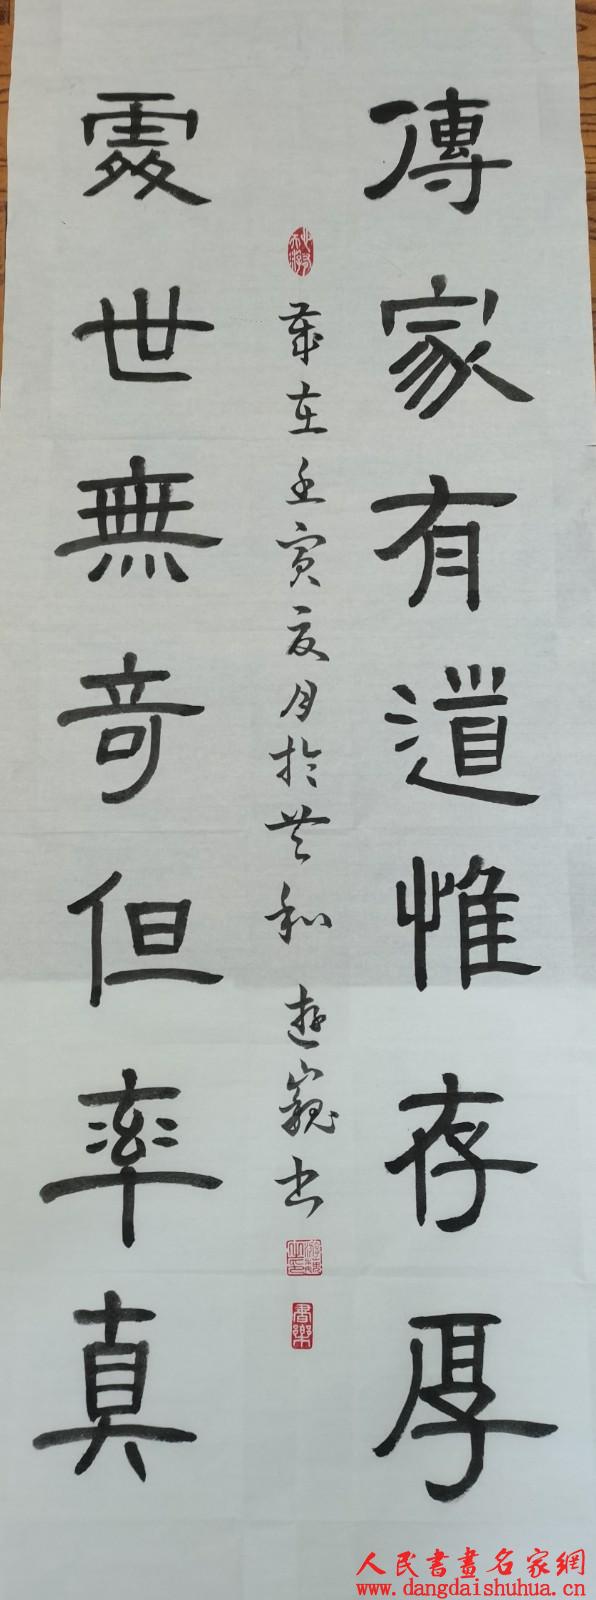 傳家有道惟存厚
處世無奇但率真
歲在壬寅夏月於共和 遊巍书
書樂
人民書畫名家網
www.dangdaishuhua.cn